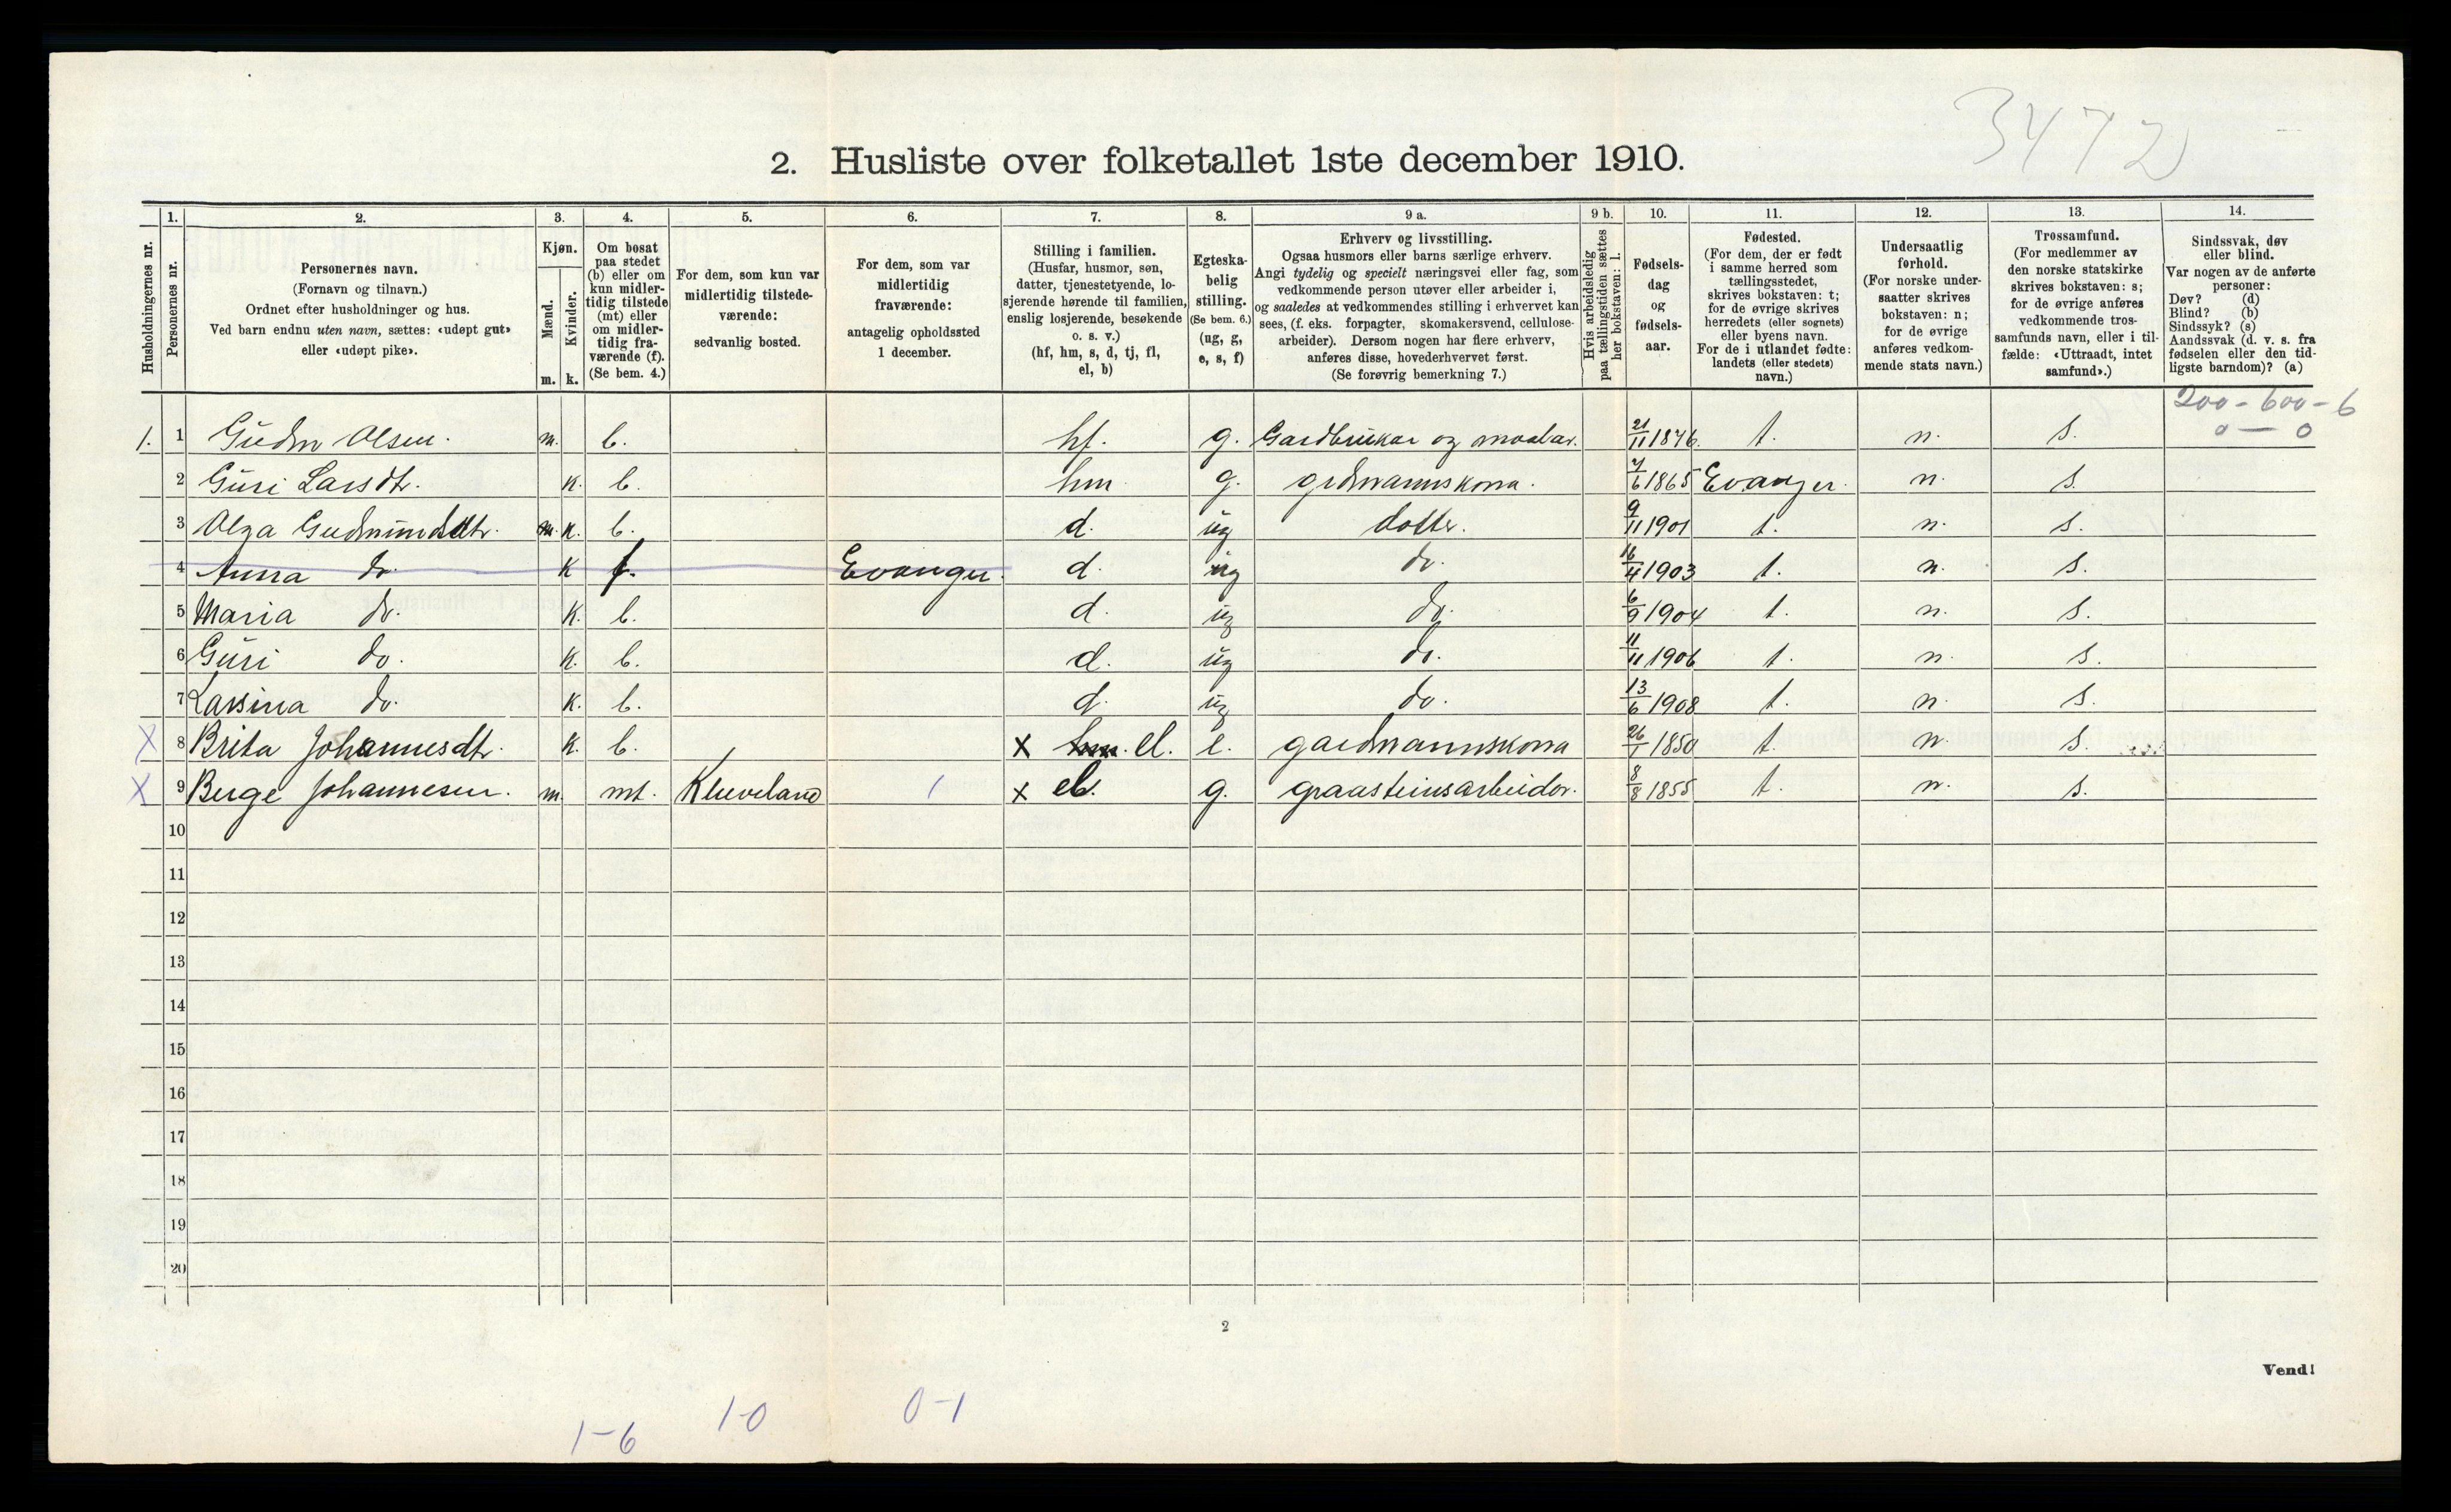 3472
2. Husliste over folketallet 1ste december 1910.
Husholdningernes nr.
1. Personernes nr.
2. Personernes navn. (Fornavn og tilnavn.) Ordnet efter husholdninger og hus. Ved barn endnu uten navn, sættes: «udøpt gut» eller «udøpt pike».
3. Kjøn. Mænd. m. Kvinder. k.
4. Om bosat paa stedet (b) eller om kun midlertidig tilstede (mt) eller om midlertidig fraværende (f). (Se bem. 4.)
5. For dem, som kun var midlertidig tilstedeværende: sedvanlig bosted.
6. For dem, som var midlertidig fraværende: antagelig opholdssted 1 december.
7. Stilling i familien. (Husfar, husmor, søn, datter, tjenestetyende, losjerende hørende til familien, enslig losjerende, besøkende o. s. v.) (hf, hm, s, d, tj, fl, el, b)
8. Egteskabelig stilling. (Se bem. 6.) (ug, g, e, s, f)
9 a. Erhverv og livsstilling. Ogsaa husmors eller barns særlige erhverv. Angi tydelig og specielt næringsvei eller fag, som vedkommende person utøver eller arbeider i, og saaledes at vedkommendes stilling i erhvervet kan sees, (f. eks. forpagter, skomakersvend, cellulosearbeider). Dersom nogen har flere erhverv, anføres disse, hovederhvervet først. (Se forøvrig bemerkning 7.)
9 b. Hvis arbeidsledig paa tællingstiden sættes her bokstaven: l.
10. Fødselsdag og fødselsaar.
11. Fødested. (For dem, der er født i samme herred som tællingsstedet, skrives bokstaven: t; for de øvrige skrives herredets (eller sognets) eller byens navn. For de i utlandet fødte: landets (eller stedets) navn.)
12. Undersaatlig forhold. (For norske undersaatter skrives bokstaven: n; for de øvrige anføres vedkommende stats navn.)
13. Trossamfund. (For medlemmer av den norske statskirke skrives bokstaven: s; for de øvrige anføres vedkommende trossamfunds navn, eller i tilfælde: «Uttraadt, intet samfund».)
14. Sindssvak, døv eller blind. Var nogen av de anførte personer: Døv? (d) Blind? (b) Sindssyk? (s) Aandssvak (d. v. s. fra fødselen eller den tidligste barndom)? (a)
200 - 600 - 6
0 — 0
1. 1 Gudm Olsen. m. b. hf. g. Gardbrukar og 21/11 1876. t. n. s.
2 Guri Larsdtr. k. b. hm g. grdmannskona. 7/6 1865 Evanger. n. s.
3 Olga Gudmundsdtr. m. k. b. d. ug dotter. 9/11 1901 t. n. s.
4 Anna do. k f. Evanger. d. ug do. 16/4 1903 t. n. s.
5 Maria do. k. b. d. ug do. 6/9 1904 t. n. s.
6 Guri do. k. b. d. ug do. 11/11 1906 t. n. s.
7 Larsina do. k. b. d. ug do. 13/6 1908 t. n. s.
X 8 Brita Johannesdtr. k. b. x hm. el. e. gardmannskona 26/1 1850 t. n. s.
X 9 Berge Johannesen. m. mt. Kleiveland / x el. g. graasteinsarbeidar. 8/8 1855 t. n. s.
10
11
12
13
14
15
16
17
18
19
20
2
Vend!
1-6 1-0 0-1